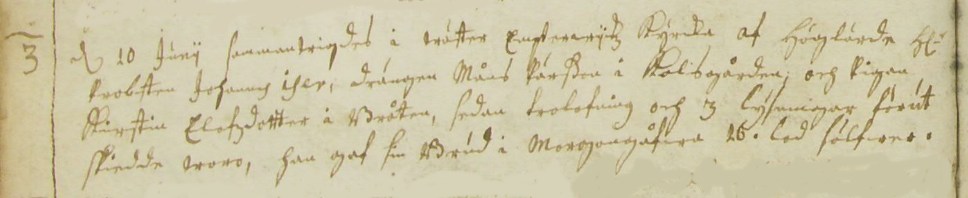 3 d 10 Junij sammanwigdes i wåtter Kyrkia af Höglärde H:
Probsten Johanne Iser, drängen Måns Pärsson i Kolisgården, och Pigan
Kirstin Elofzdotter i Bråten, sedan trolofning och 3 lysningar förut
skiedde woro, han gaf sin Brud i Morgongåfwa 16. lod sölfwer.